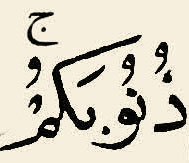 ذُنُوبَكُمُ ۚ